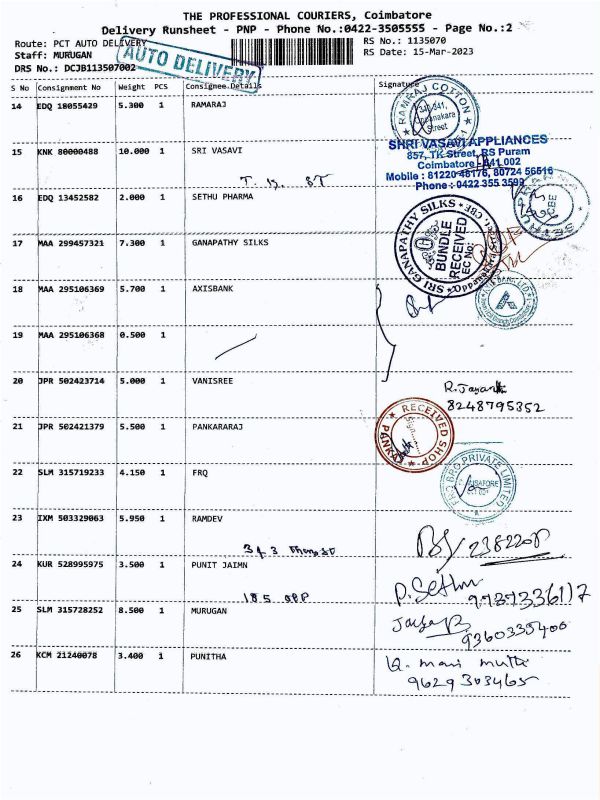 THE PROFESSIONAL COURIERS, Coimbatore
Delivery Runsheet - PNP - Phone No.:0422-3505555 - Page No.:2
Route: PCT AUTO DELIVERY
RS No.: 1135070
Staff: MURUGAN
RS Date: 15-Mar-2023
DRS No.: DCJB113507002
AUTO DELIVERY
S No Consignment No Weight PCS Consignee Details Signature
14 EDQ 18055429 5.300 1 RAMARAJ
RAMRAJ COTTON
Street
15 KNK 80000488 10.000 1 SRI VASAVI
SHRI VASAVI APPLIANCES
857, TK Street, RS Puram
Coimbatore - 641 002
Mobile : 81220 48176, 80724 56516
Phone : 0422 355 3599
16 EDQ 13452582 2.000 1 SETHU PHARMA
CBE
17 MAA 299457321 7.300 1 GANAPATHY SILKS
SRI GANAPATHY SILKS
BUNDLE
RECEIVED
EC No:
18 MAA 295106369 5.700 1 AXISBANK
AXIS BANK LTD
19 MAA 295106368 0.500 1
20 JPR 502423714 5.000 1 VANISREE
8248795352
21 JPR 502421379 5.500 1 PANKARARAJ
RECEIVED SHOP
22 SLM 315719233 4.150 1 FRQ
FRQ BRO PRIVATE LIMITED
23 IXM 503329063 5.950 1 RAMDEV
24 KUR 528995975 3.500 1 PUNIT JAIMN
P. Sethu
9787336117
25 SLM 315728252 8.500 1 MURUGAN
9360335400
26 KCM 21240078 3.400 1 PUNITHA
9629303465